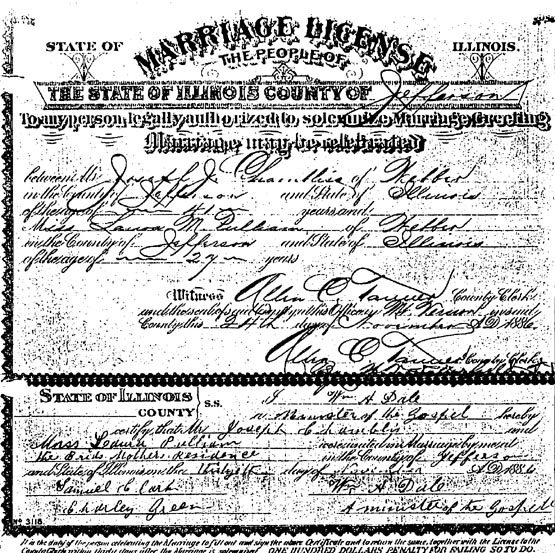 STATE OF ILLINOIS.
MARRIAGE LICENSE
THE PEOPLE OF
THE STATE OF ILLINOIS COUNTY OF Jefferson
To any person legally authorized to solemnize Marriage Greeting
Marriage may be celebrated
between Mr Joseph J. Chambliss of Webber
in the County of Jefferson and State of Illinois
of the age of years and
Miss Laura M. Pulliam of Webber
in the County of Jefferson and State of Illinois
of the age of 29 years
Witness Allen C. Tanner County Clerk
and the seal of said County at his Office in Mt. Vernon in said
County this 24th day of November A.D. 1886
Allen C Tanner County Clerk
STATE OF ILLINOIS
COUNTY S.S. I Wm A Dale
a Minister of the Gospel hereby
certify that Mr Joseph Chambliss and
Miss Laura Pulliam were united in Marriage by me at
the Brids Mothers Residence in the County of Jefferson
and State of Illinois on the day of A.D. 1886
Samuel Clark Wm A Dale
Charley Green A minister of the Gospel
No 3118
It is the duty of the person celebrating the Marriage to fill out and sign the above Certificate and to return the same, together with the License to the
County Clerk within thirty days after the Marriage is solemnized ONE HUNDRED DOLLARS PENALTY FOR FAILING SO TO DO.